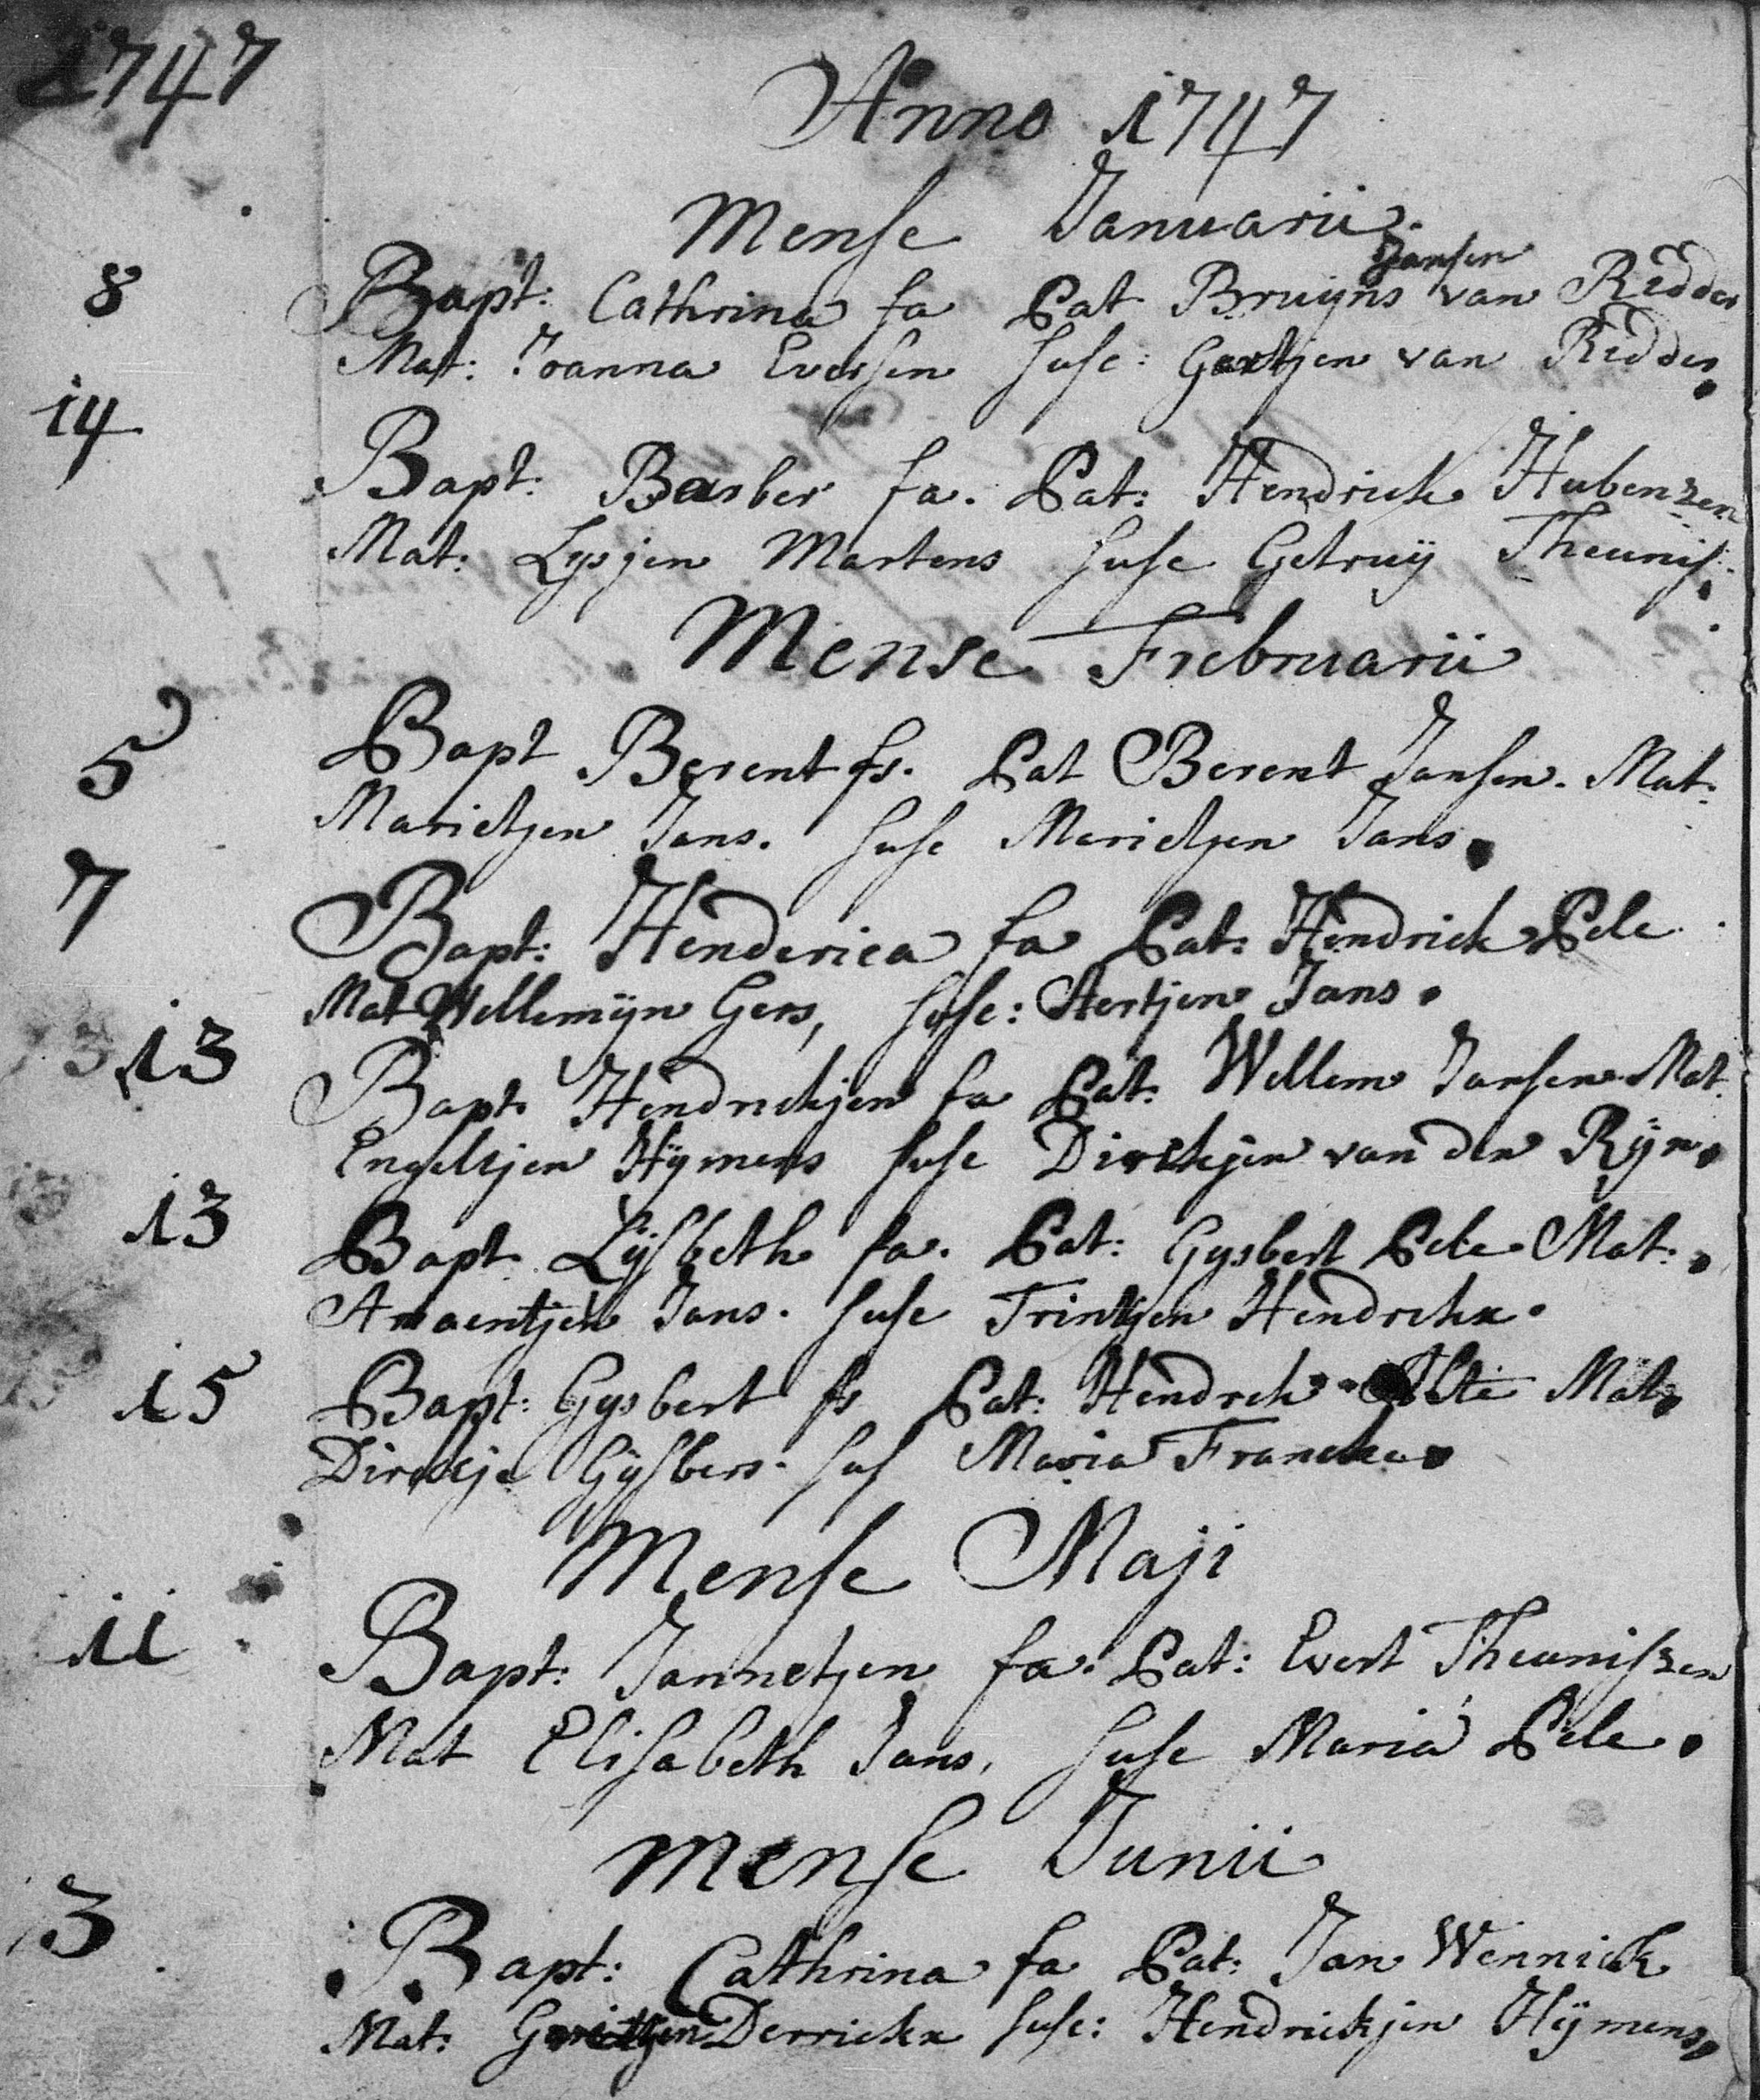 1747
Anno 1747
Mense Januarii
Jansen
8 Bapt: Cathrina fa Pat Bruyns van Ridder
Mat: Joanna Eversen susc: Geertjen van Ridder.
14 Bapt: Barber fa. Pat: Hendrick Hubenzen
Mat: Lysjen Martens susc Getruÿ Theunis.
Mense Frebruarii
5 Bapt Berent fs. Pat Berent Jansen. Mat:
Marietjen Jans. susc Marietjen Jans.
7 Bapt: Henderica fa Pat: Hendrick Pele
Mat Wellemÿn Gers, susc: Aertjen Jans.
13 Bapt. Hendrickjen fa Pat: Wellem Jansen Mat.
Engeltjen Hÿmens susc Dirckjen van den Rÿn.
13 Bapt Lÿsbeth fa. Pat: Gysbert Pele Mat:.
Jans. susc Trintjen Hendrckx.
15 Bapt: Gysbert fs Pat: Hendrck Mat.
Dirckje Gÿsbers. sus Maria Francken
Mense Maji
11 Bapt: Jannetjen fa. Pat: Evert Theuniszen
Mat Elisabeth Jans, susc Maria Pele.
Mense Junii
3 Bapt: Cathrina fa Pat: Jan Wennick
Mat: Derrickx susc: Hendrickjen Hÿmens.